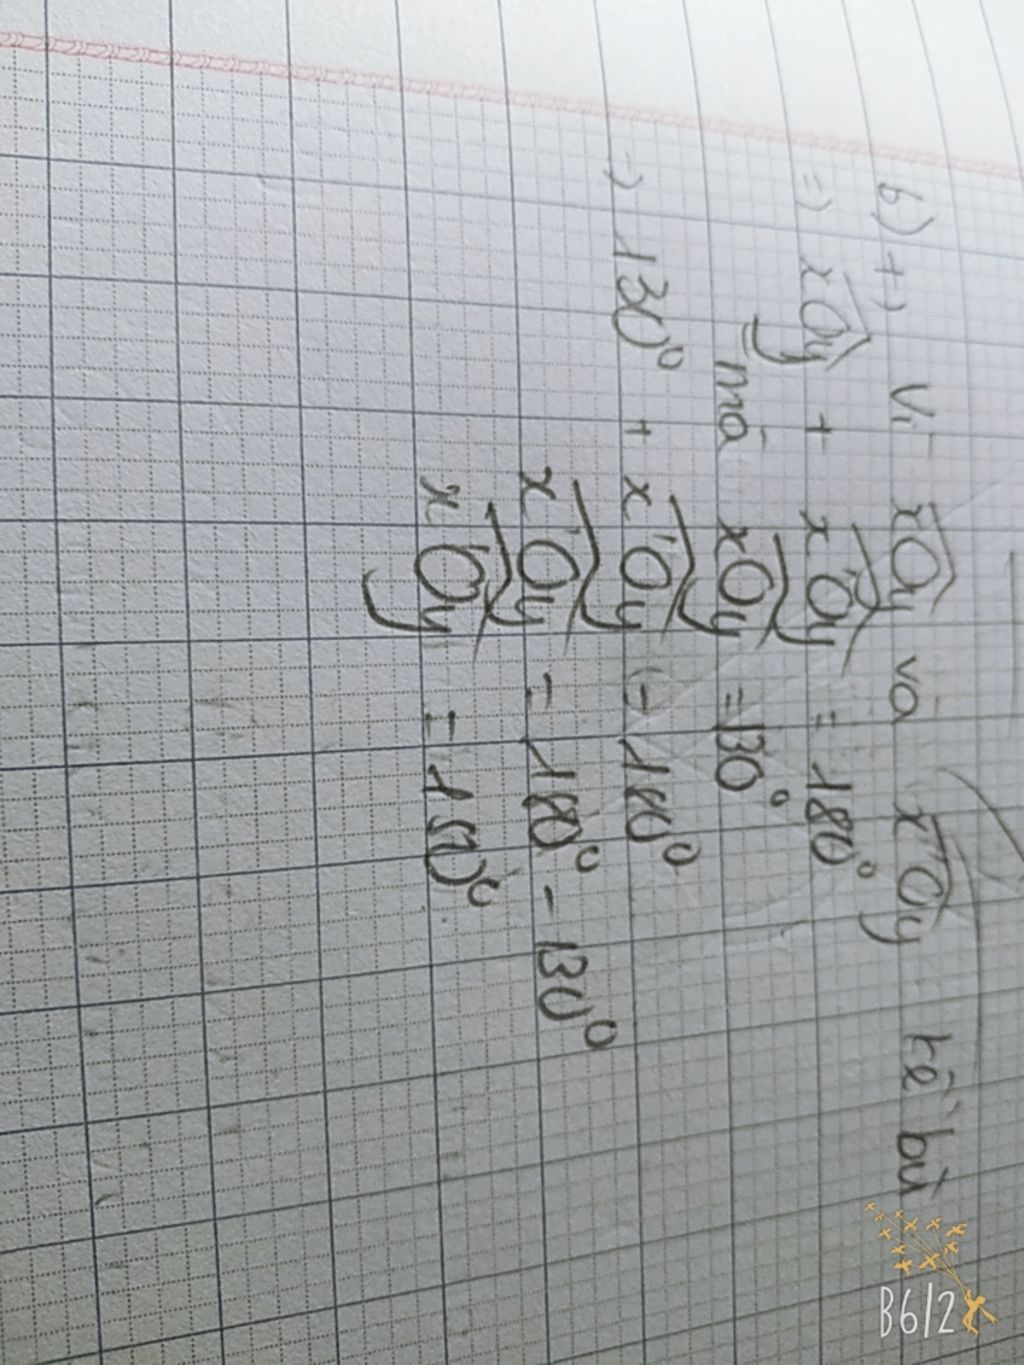 b) +) Vì xOy và x'Oy kề bù
=) xOy + x'Oy = 180°
mà xOy = 130°
=) 130° + x'Oy = 180°
x'Oy = 180° - 130°
x'Oy = 150°
B6/2